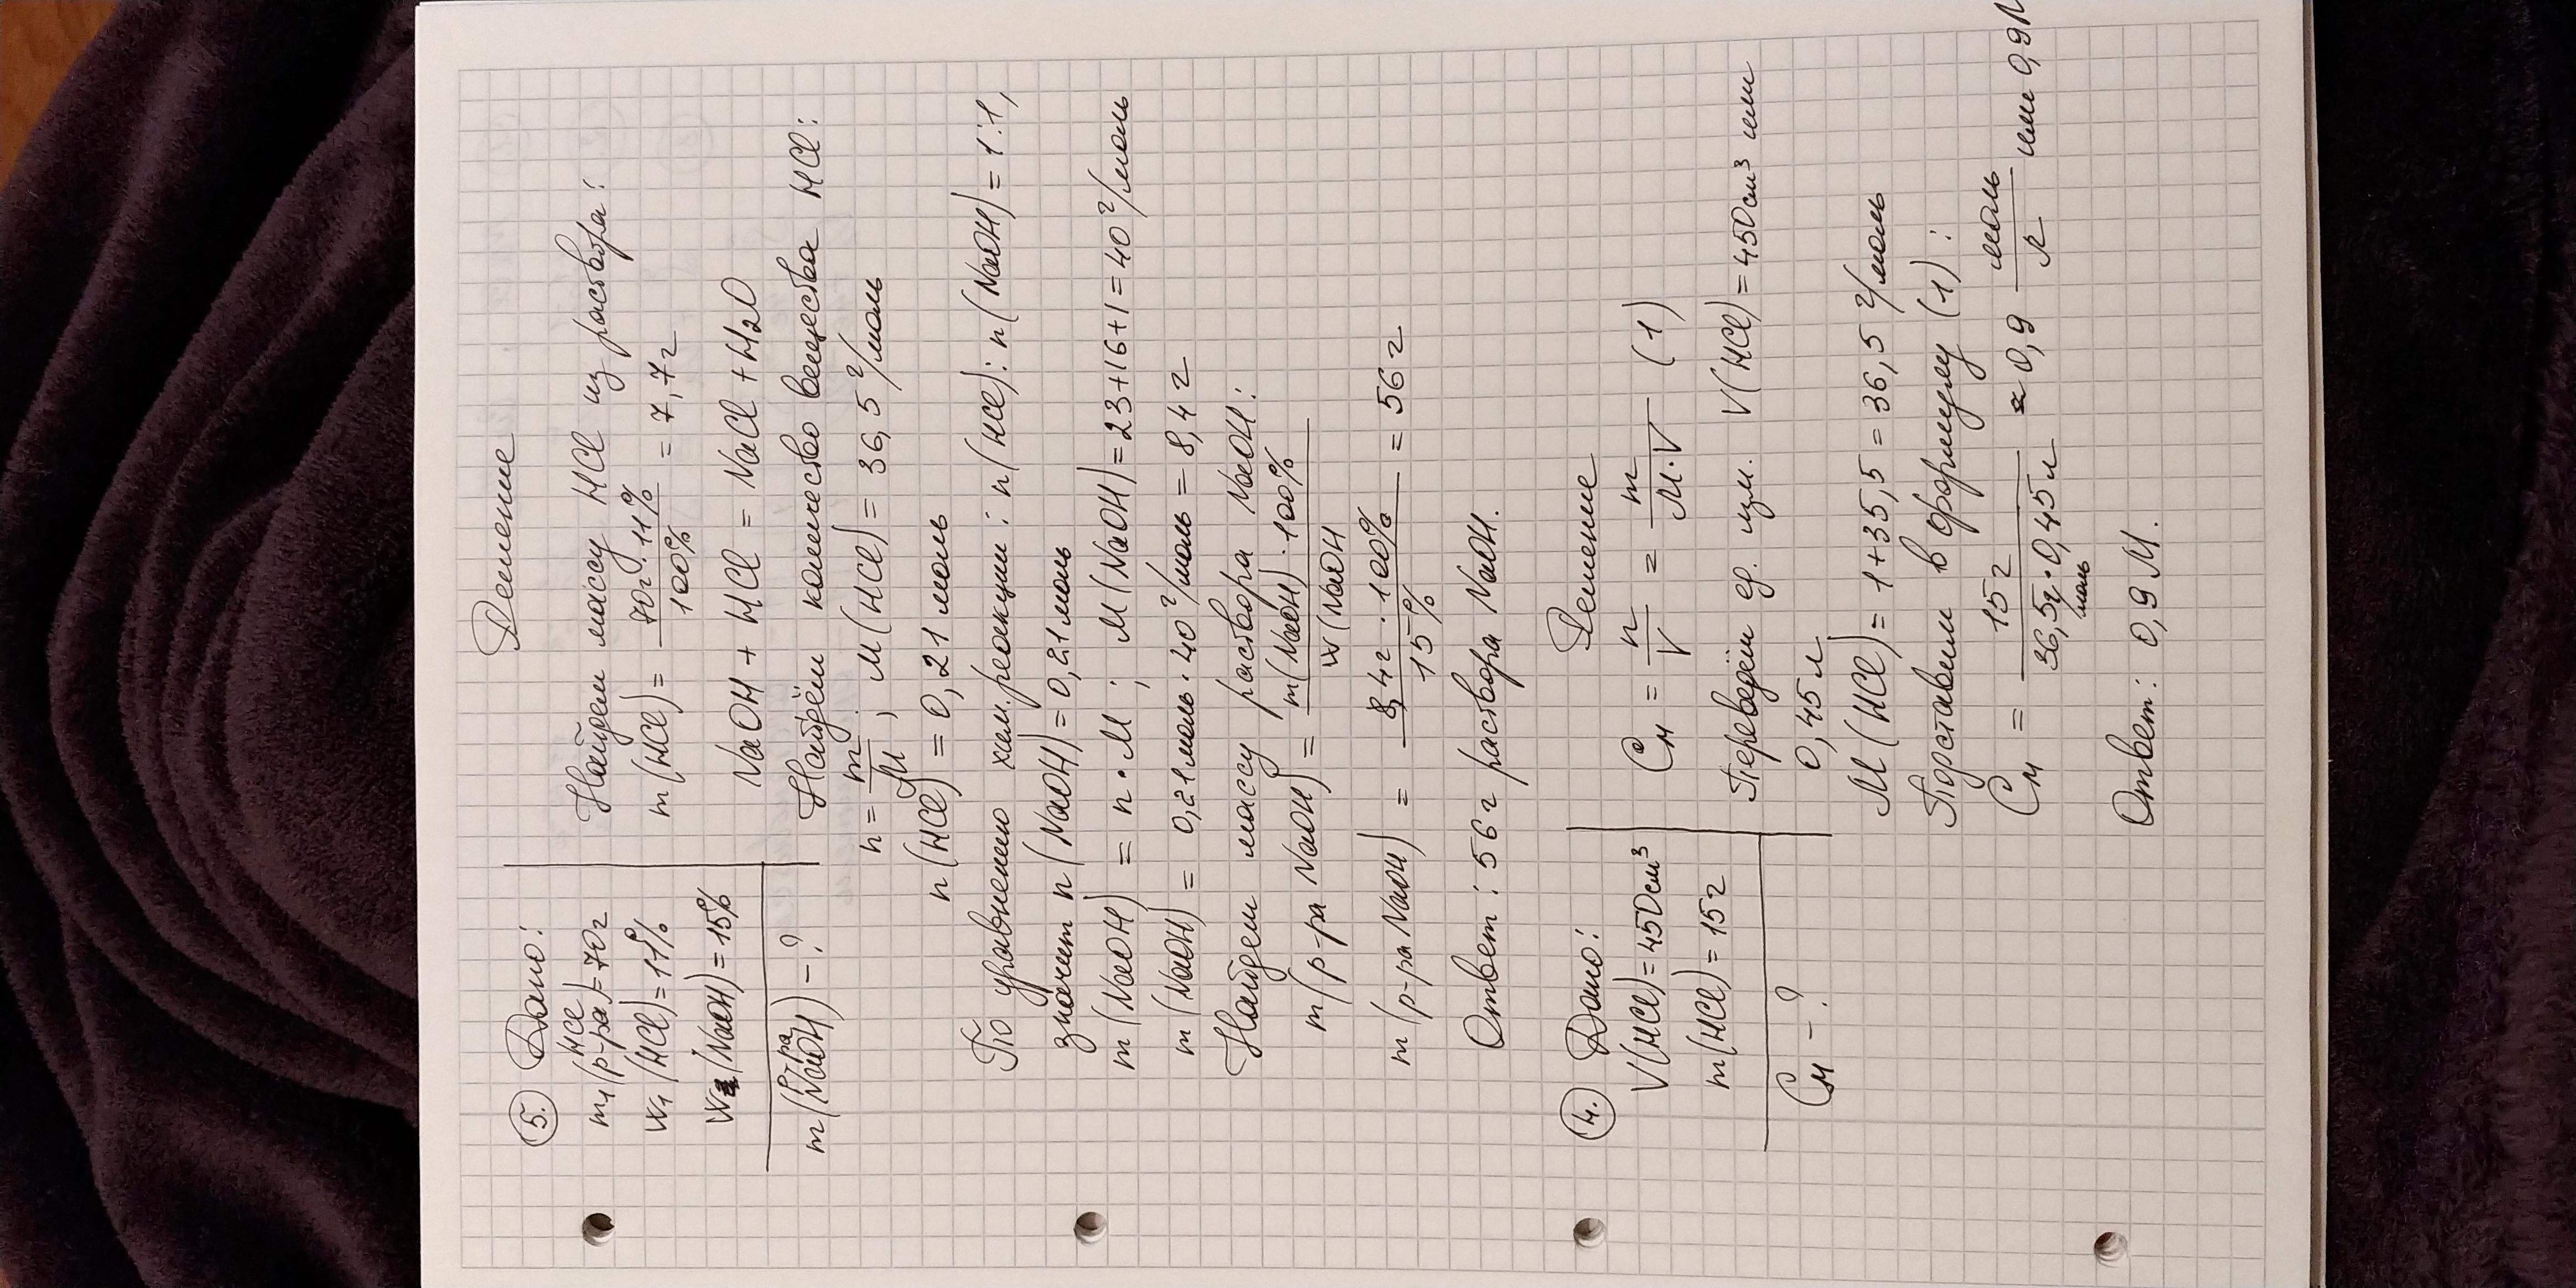 Решение
5. Дано:
m₁(р-ра HCl)=70г
w₁(HCl)=11%
w₂(NaOH)=15%
m(р-ра NaOH) – ?
Найдем массу HCl из раствора:
m(HCl) = 70г · 11% / 100% = 7,7г
NaOH + HCl = NaCl + H₂O
Найдём количество вещества HCl:
n = m/M ; M(HCl) = 36,5 г/моль
n(HCl) = 0,21 моль
По уравнению хим. реакции: n(HCl) : n(NaOH) = 1:1,
значит n(NaOH) = 0,21моль
m(NaOH) = n · M ; M(NaOH) = 23+16+1 = 40 г/моль
m(NaOH) = 0,21моль · 40 г/моль = 8,4г
Найдем массу раствора NaOH:
m(р-ра NaOH) = m(NaOH) · 100% / w(NaOH
m(р-ра NaOH) = 8,4г · 100% / 15% = 56г
Ответ: 56г раствора NaOH.
4. Дано:
V(HCl)=450см³
m(HCl)=15г
Cм – ?
Решение
Cм = n/V = m/M·V (1)
Переведём ед. изм. V(HCl) = 450см³ или
0,45л
M(HCl) = 1+35,5 = 36,5 г/моль
Подставим в формулу (1):
Cм = 15г / 36,5г/моль · 0,45л ≈ 0,9 моль/л или 0,9М
Ответ: 0,9 М.